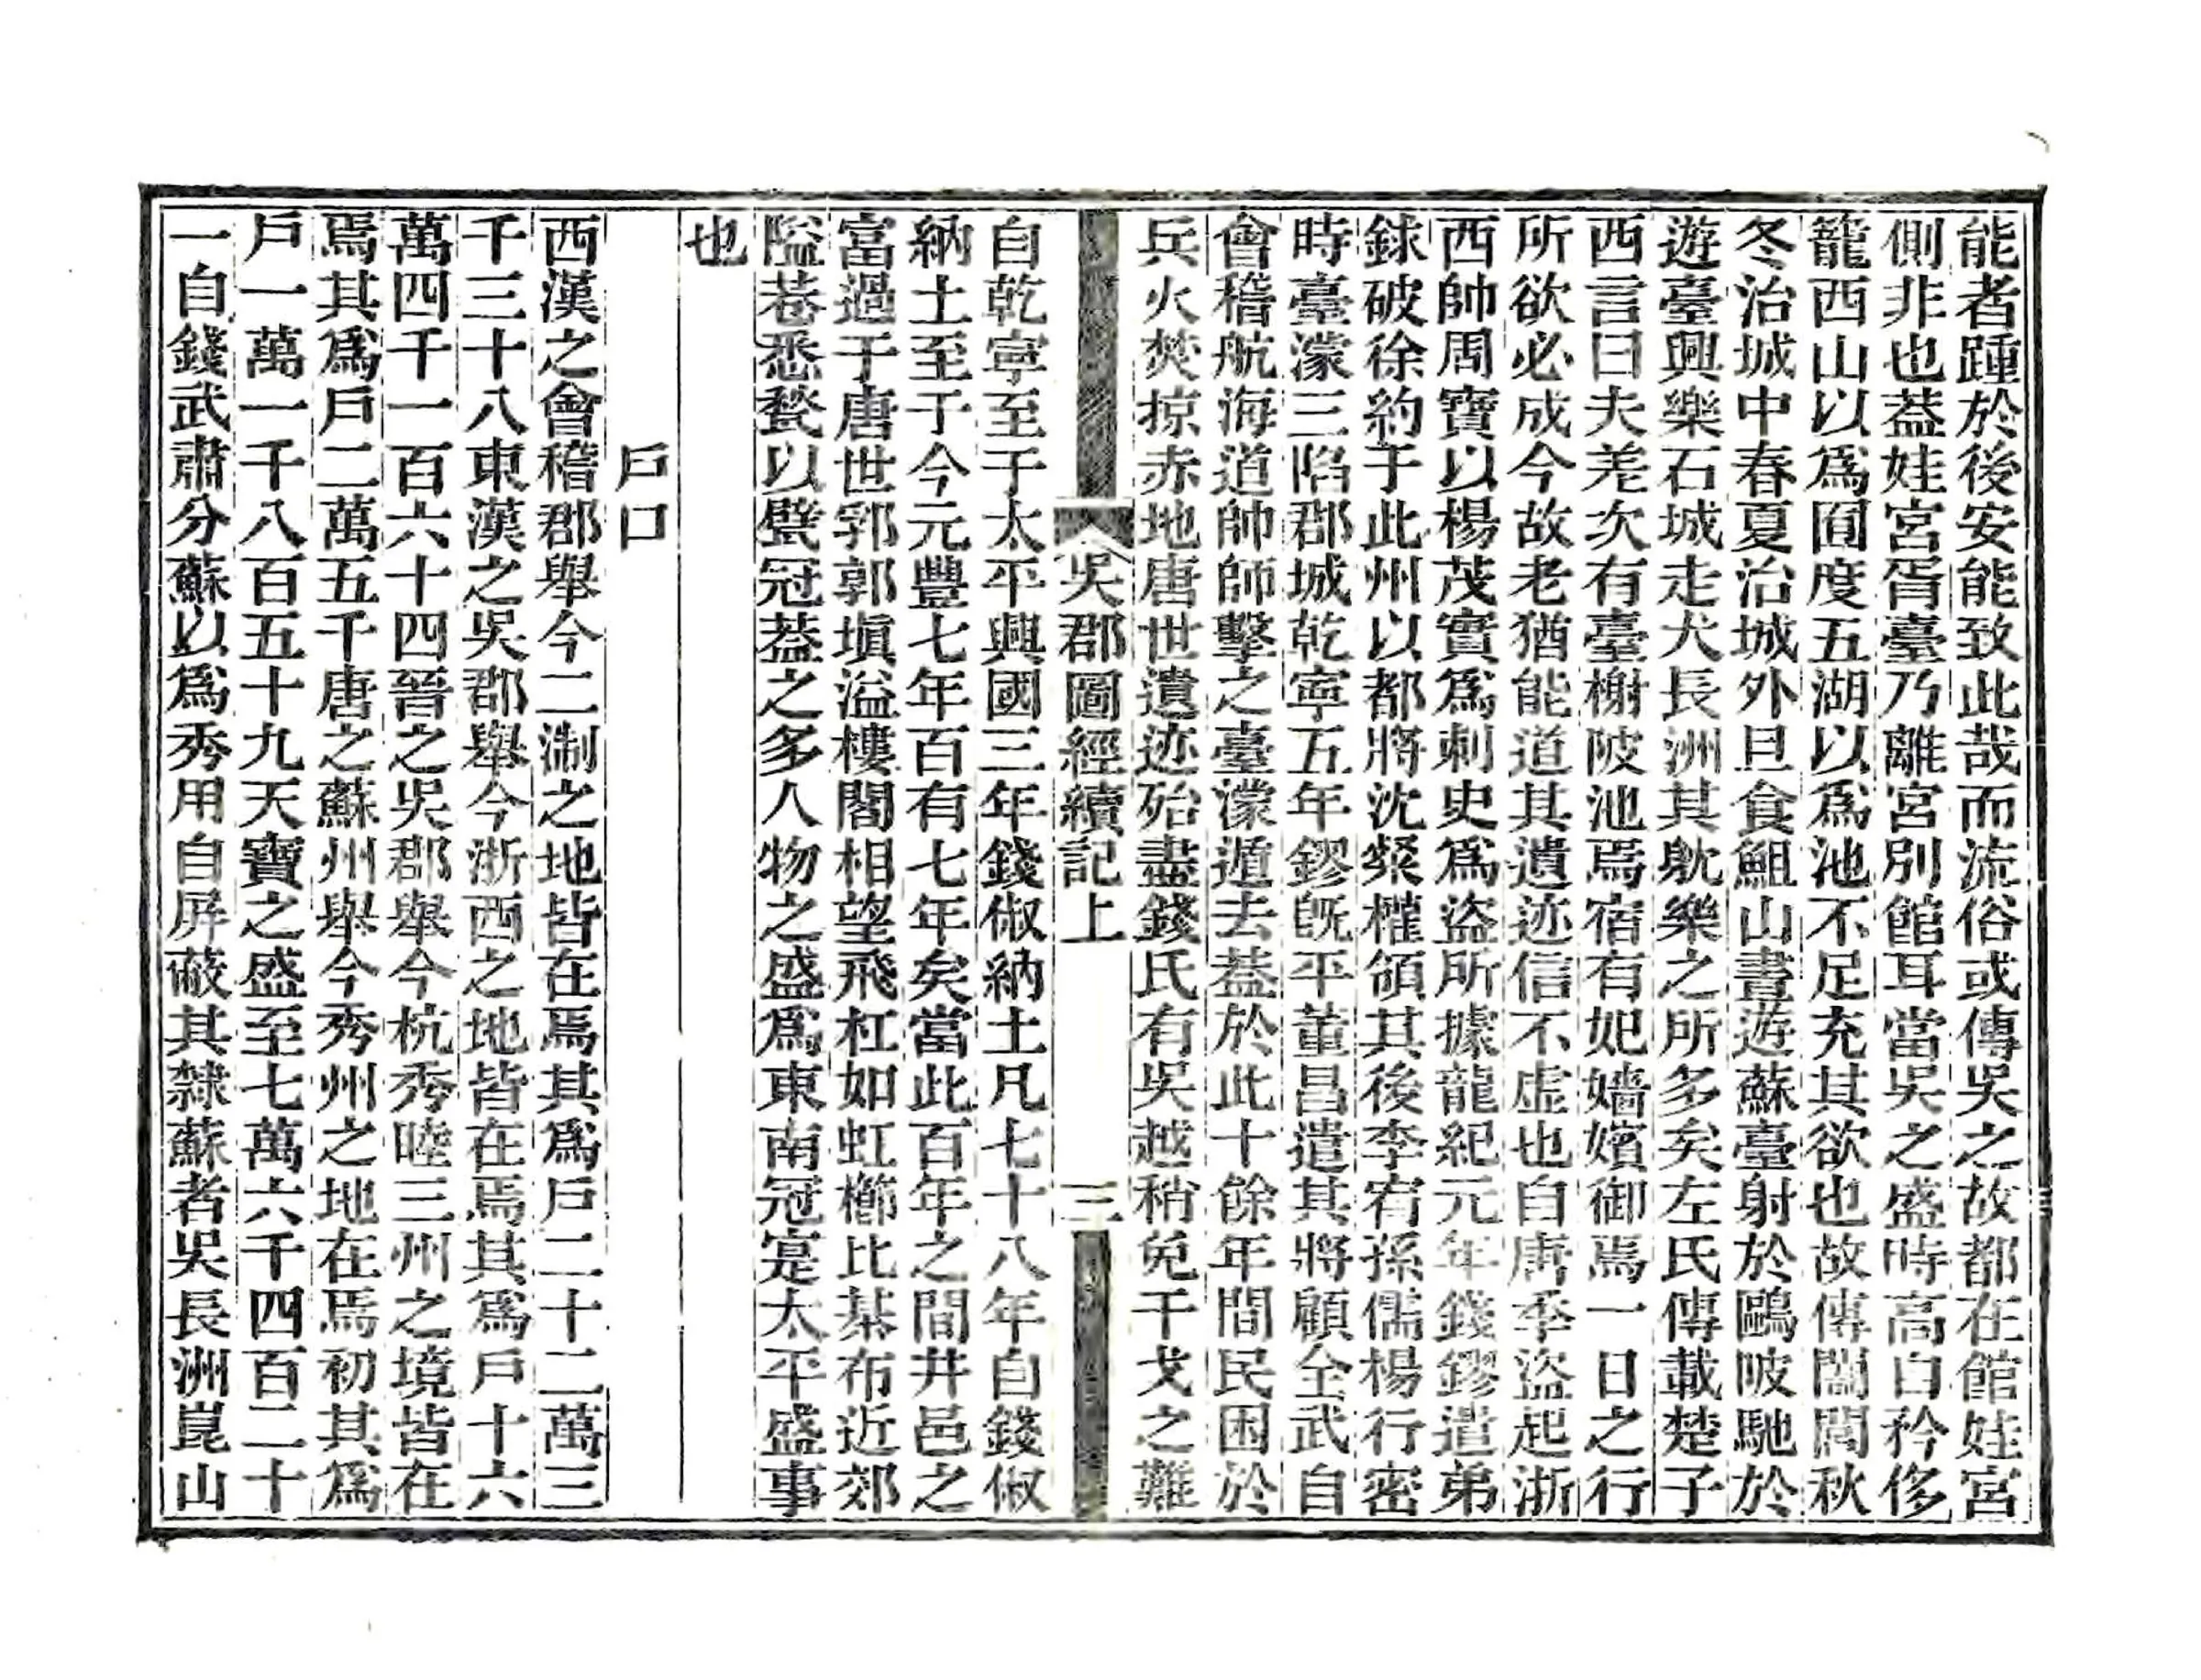 能者踵於後安能致此哉而流俗或傳吳之故都在館娃宮
側非也葢娃宮胥臺乃離宮別館耳當吳之盛時高自矜侈
籠西山以為囿度五湖以為池不足充其欲也故傳闔閭秋
冬治城中春夏治城外旦食䱉山晝遊蘇臺射於鷗陂馳於
遊臺興樂石城走犬長洲其躭樂之所多矣左氏傳載楚子
西言曰夫差次有臺榭陂池焉宿有妃嬙嬪御焉一日之行
所欲必成今故老猶能道其遺迹信不虛也自唐季盜起浙
西帥周寶以楊茂實為刺史為盜所據龍紀元年錢鏐遣弟
銶破徐約于此州以都將沈粲權領其後李宥孫儒楊行密
時臺濛三陷郡城乾寧五年鏐旣平董昌遣其將顧全武自
會稽航海道帥師擊之臺濛遁去葢於此十餘年間民困於
兵火焚掠赤地唐世遺迹殆盡錢氏有吳越稍免干戈之難
吳郡圖經續記上 三
自乾寧至于太平興國三年錢俶納土凡七十八年自錢俶
納土至于今元豐七年百有七年矣當此百年之間井邑之
富過于唐世郛郭塡溢樓閣相望飛杠如虹櫛比棊布近郊
隘巷悉甃以甓冠葢之多人物之盛為東南冠寔太平盛事
也
戶口
西漢之會稽郡舉今二淛之地皆在焉其為戶二十二萬三
千三十八東漢之吳郡舉今浙西之地皆在焉其為戶十六
萬四千一百六十四晉之吳郡舉今杭秀睦三州之境皆在
焉其為戶二萬五千唐之蘇州舉今秀州之地在焉初其為
戶一萬一千八百五十九天寶之盛至七萬六千四百二十
一自錢武肅分蘇以為秀用自屏蔽其隸蘇者吳長洲崑山